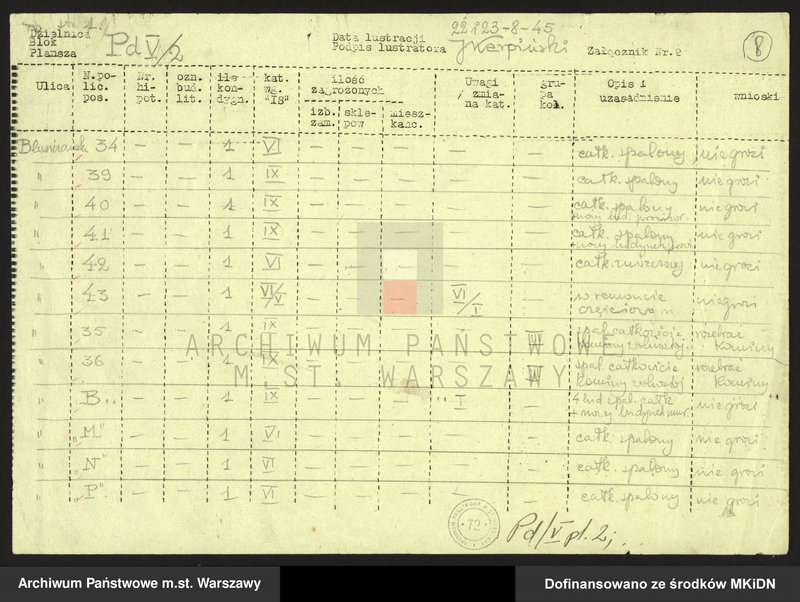 Dzielnica
Blok
Plansza
Pd V/2
Data lustracji 22 i 23-8-45
Podpis lustratora JKarpiński
Załącznik Nr.2
8
Ulica N.po-lic. pos. Nr. hi-pot. ozn. bud. lit. ile kon-dygn. kat. wg. "IS" ilość zagrożonych izb. zam. skle-pów mieszk-kanc. Uwagi zmia-na kat. gru-pa kol. Opis i uzasadnienie wnioski
34 — — 1 VI — — — — — całk. spalony nie grozi
" 39 — — 1 IX — — — — — całk. spalony nie grozi
" 40 — — 1 IX — — — — — całk. spalony nie grozi
" 41 — — 1 IX — — — — — całk. spalony nie grozi
" 42 — — 1 VI — — — — — całk. zniszczony nie grozi
" 43 — — 1 VI/V — — — VI/I — w remoncie częściowym nie grozi
" 35 — — 1 IX — — — — III spal. całkowicie kominy rozebrać kominy
" 36 — — 1 IX — — — — III spal. całkowicie kominy rozebrać kominy
" B — — 1 IX — — — I — 4 bud spal. całk nie grozi
" "M" — — 1 VI — — — — — całk. spalony nie grozi
" "N" — — 1 VI — — — — — całk. spalony nie grozi
" "P" — — 1 VI — — — — — całk. spalony nie grozi
72
Pd/V pl. 2;
ARCHIWUM PAŃSTWOWE
M.ST. WARSZAWY
Archiwum Państwowe m.st. Warszawy
Dofinansowano ze środków MKiDN